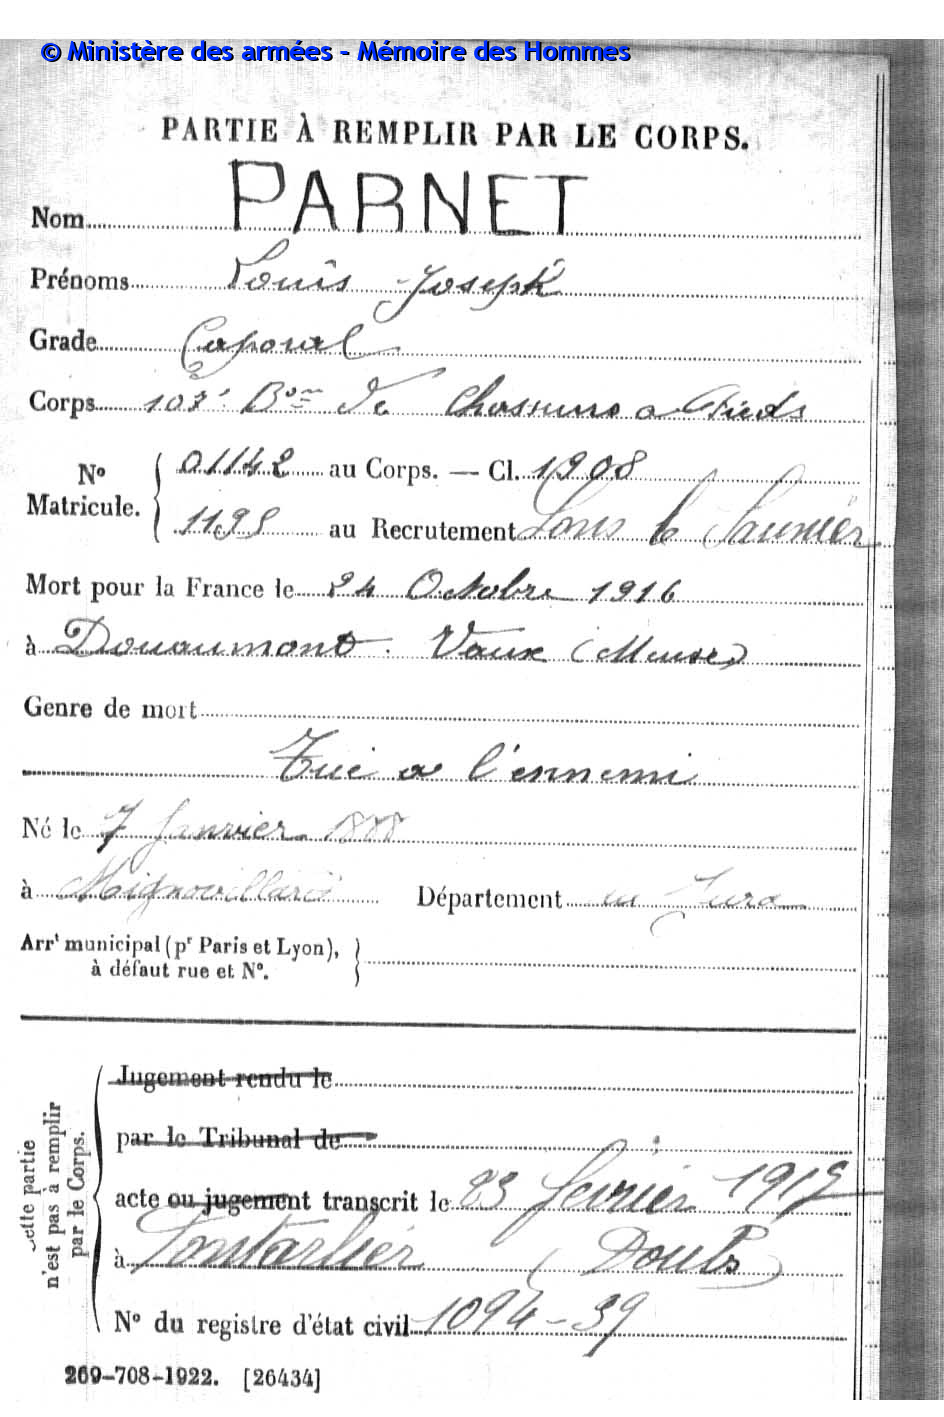 © Ministère des armées - Mémoire des Hommes
PARTIE À REMPLIR PAR LE CORPS.
Nom PARNET
Prénoms Louis Joseph
Grade Caporal
Corps 107e Bon de Chasseurs a Pieds
No Matricule. 01142 au Corps. — Cl. 1908
1195 au Recrutement Lons le Saunier
Mort pour la France le 24 Octobre 1916
à Douaumont. Vaux (Meuse)
Genre de mort
Tué a l'ennemi
Né le 7 Janvier 1888
à Mignovillard Département du Jura
Arrt municipal (pr Paris et Lyon),
à défaut rue et No.
Cette partie
n'est pas à remplir
par le Corps.
Jugement rendu le
par le Tribunal de
acte ou jugement transcrit le 23 février 1917
à Pontarlier (Doubs)
No du registre d'état civil 1094-39
269-708-1922. [26434]